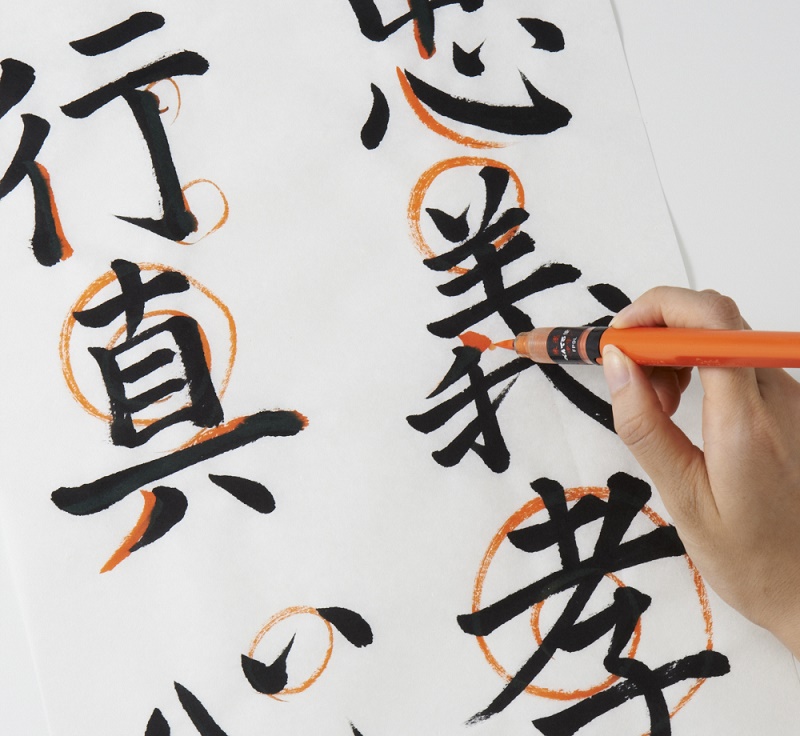 忠義孝
行真